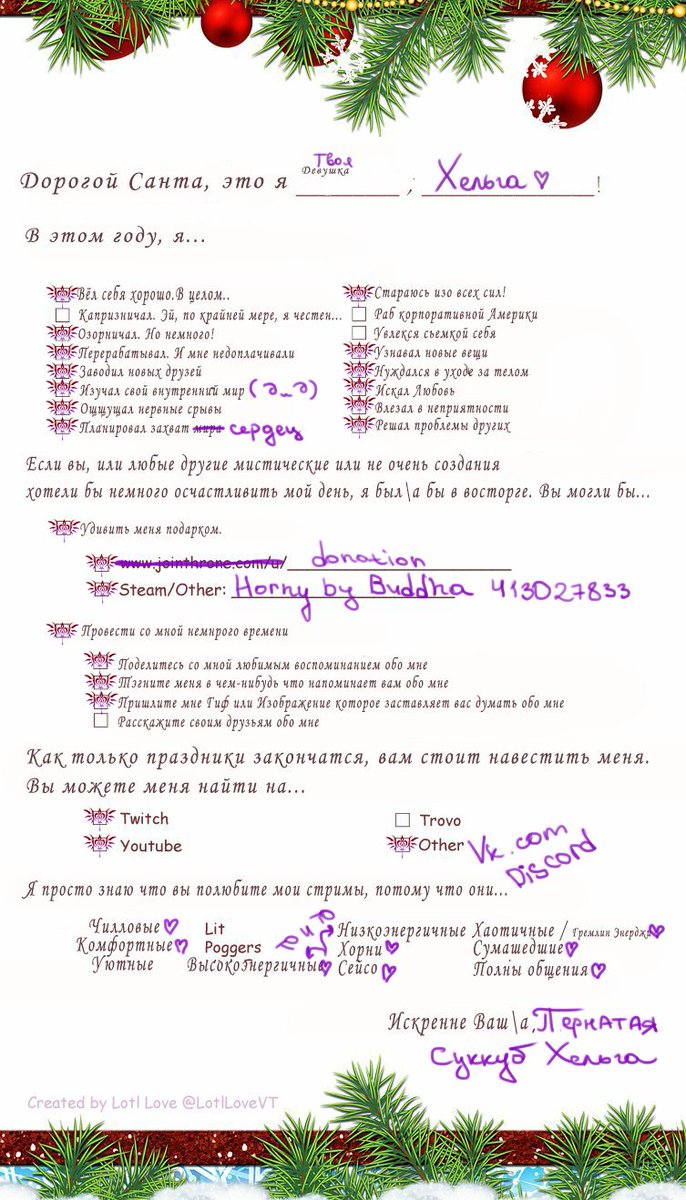 Твоя
Девушка
Дорогой Санта, это я __________ ; Хельга ♡ !
В этом году, я...
Вёл себя хорошо.В целом..
Капризничал. Эй, по крайней мере, я честен...
Озорничал. Но немного!
Перерабатывал. И мне недоплачивали
Заводил новых друзей
Изучал свой внутренний мир
Оццущал нервные срывы
Планировал захват мира сердец
Стараюсь изо всех сил!
Раб корпоративной Америки
Увлекся сьемкой себя
Узнавал новые вещи
Нуждался в уходе за телом
Искал Любовь
Влезал в неприятности
Решал проблемы других
Если вы, или любые другие мистические или не очень создания
хотели бы немного осчастливить мой день, я был\а бы в восторге. Вы могли бы...
Удивить меня подарком.
www.jointhrone.com/u/ donation
Steam/Other: Horny by Buddha 413027833
Провести со мной немнрого времени
Поделитесь со мной любимым воспоминанием обо мне
Тэгните меня в чем-нибудь что напоминает вам обо мне
Пришлите мне Гиф или Изображение которое заставляет вас думать обо мне
Расскажите своим друзьям обо мне
Как только праздники закончатся, вам стоит навестить меня.
Вы можете меня найти на...
Twitch
Youtube
Trovo
Other Vk.com
Discord
Я просто знаю что вы полюбите мои стримы, потому что они...
Чилловые ♡
Комфортные ♡
Уютные
Lit
Poggers
Высокоэнергичные ♡
Низкоэнергичные
Хорни ♡
Сейсо ♡
Хаотичные / Гремлин Энерджи ♡
Сумашедшие ♡
Полны общения ♡
Искренне Ваш\а, Пернатая
Суккуб Хельга
Created by Lotl Love @LotlLoveVT